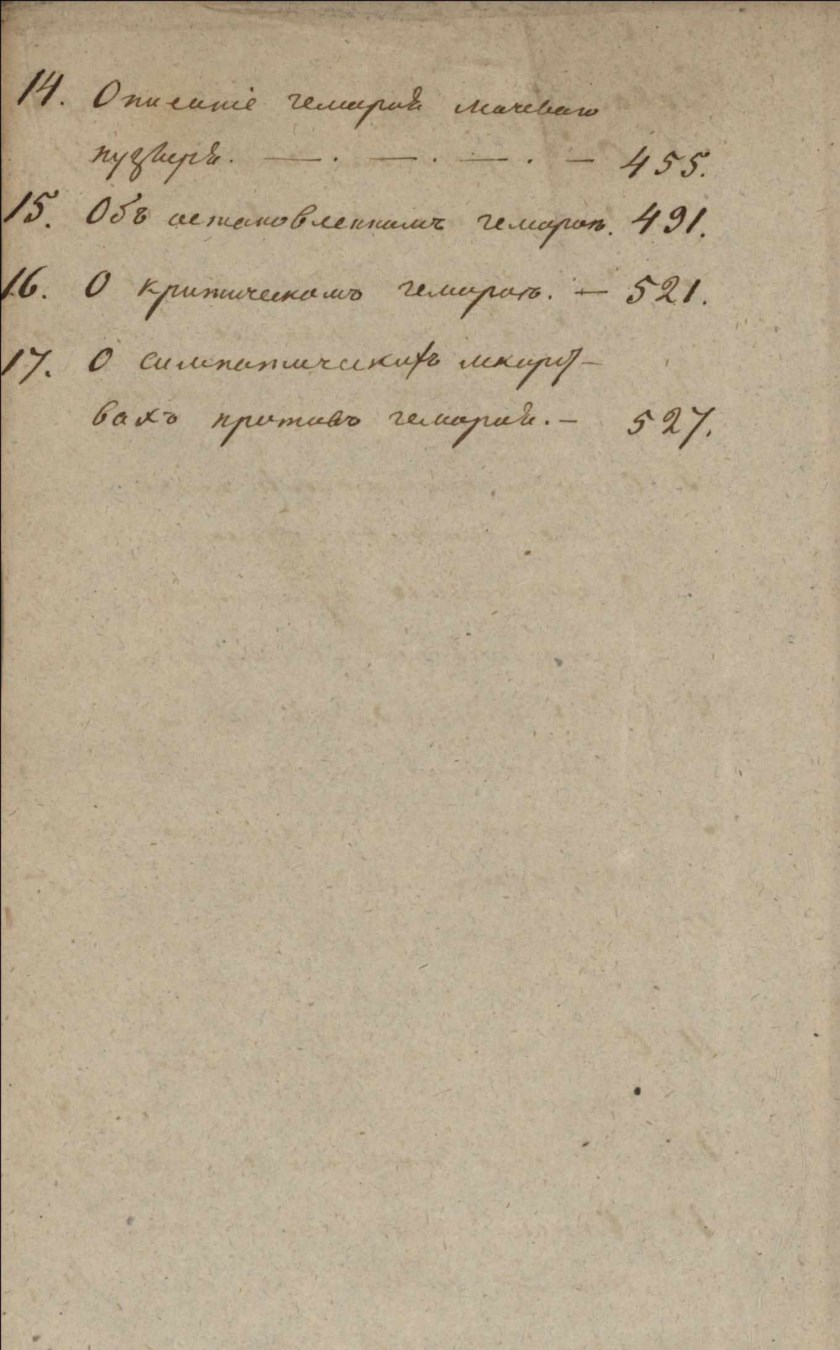 14. Описаніе геморой мочеваго
пузыря. — . — . — . — 455.
15. Объ остановленномъ гемороѣ. 491.
16. О критическомъ гемороѣ. — 521.
17. О симпатическихъ лекарст-
вахъ противъ геморой. — 527.